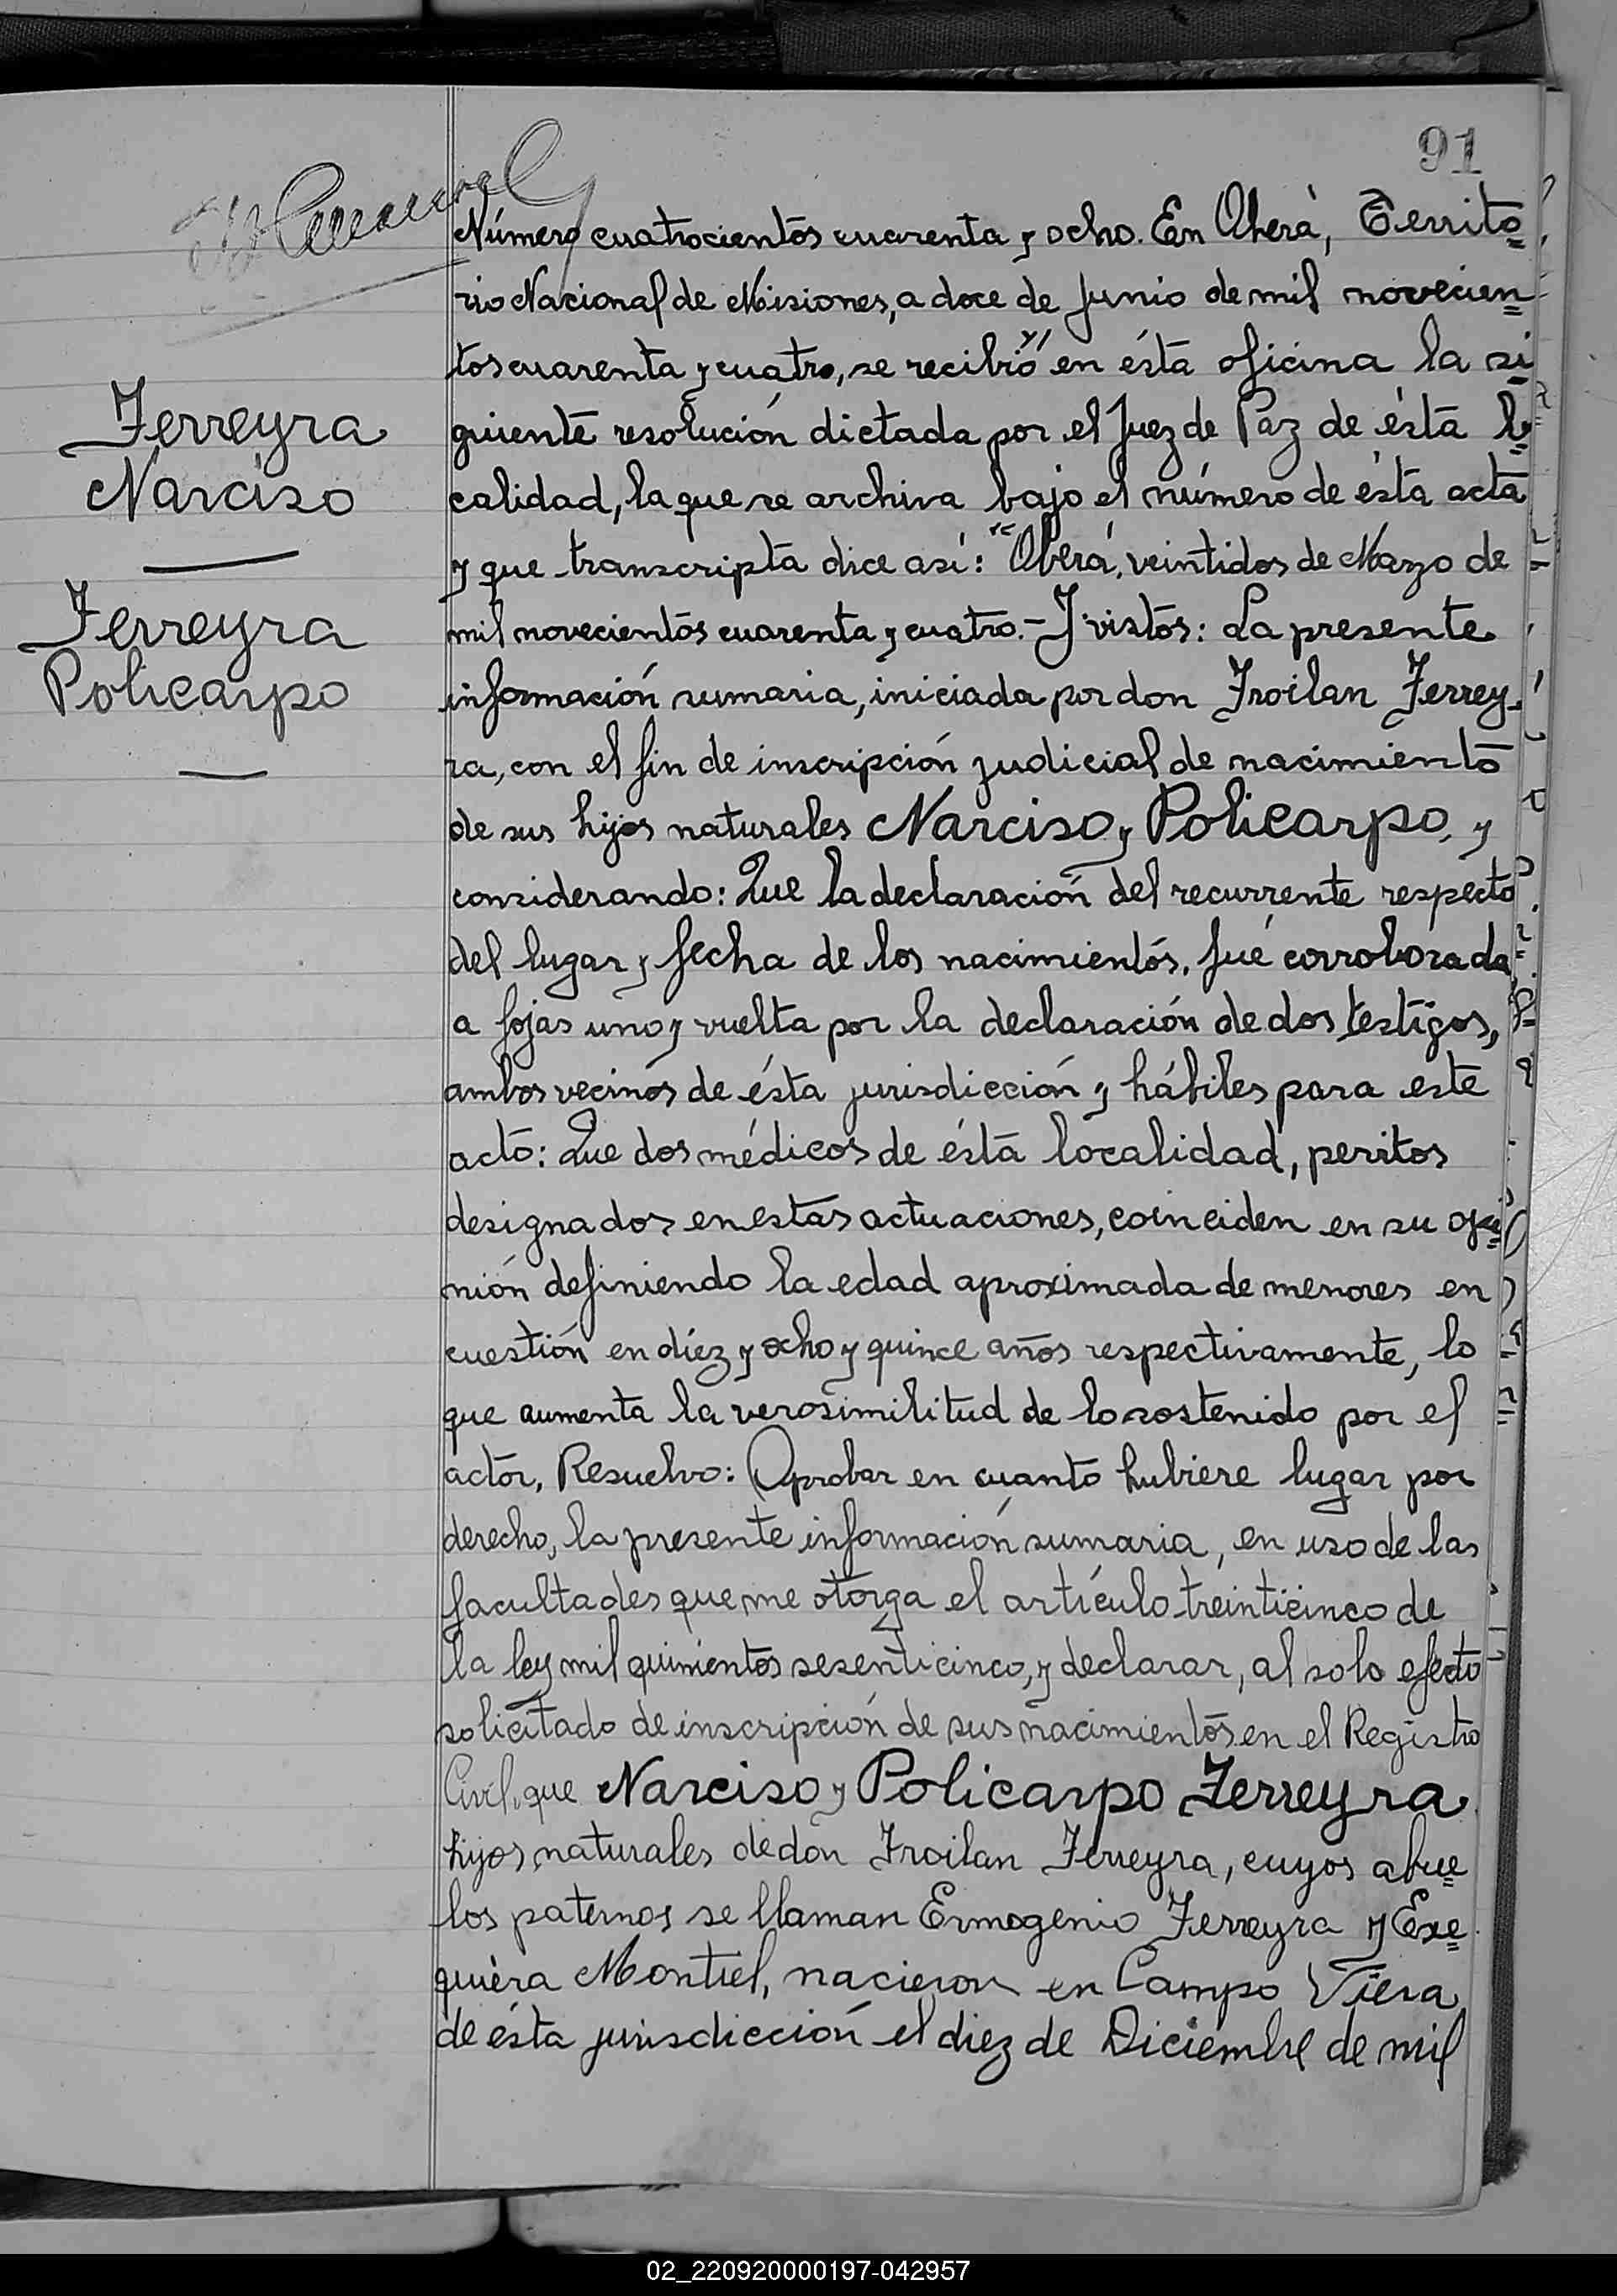 91
Número cuatrocientos cuarenta y ocho. En Oberá, Territo=
rio Nacional de Misiones, a doce de Junio de mil novecien=
tos cuarenta y cuatro, se recibió en ésta oficina la si=
guiente resolución dictada por el Juez de Paz de ésta lo=
calidad, la que se archiva bajo el número de ésta acta
y que transcripta dice así: "Oberá, veintidos de Marzo de
mil novecientos cuarenta y cuatro.- Y vistos: La presente
información sumaria, iniciada por don Froilan Ferrey-
ra, con el fin de inscripción judicial de nacimiento
de sus hijos naturales Narciso y Policarpo, y
considerando: Que la declaración del recurrente respecto
del lugar y fecha de los nacimientos, fué corroborada
a fojas uno y vuelta por la declaración de dos testigos,
ambos vecinos de ésta jurisdicción y hábiles para este
acto: Que dos médicos de ésta localidad, peritos
designados en estas actuaciones, coinciden en su opi=
nión definiendo la edad aproximada de menores en
cuestión en diéz y ocho y quince años respectivamente, lo
que aumenta la verosimilitud de lo sostenido por el
actor, Resuelvo: Aprobar en cuanto hubiere lugar por
derecho, la presente información sumaria, en uso de las
facultades que me otorga el artículo treinticinco de
la ley mil quinientos sesenticinco, y declarar, al solo efecto
solicitado de inscripción de sus nacimientos en el Registro
Civil, que Narciso y Policarpo Ferreyra
hijos naturales de don Froilan Ferreyra, cuyos abue=
los paternos se llaman Ermogenio Ferreyra y Exe=
quiera Montiel, nacieron en Campo Viera
de ésta jurisdicción el diez de Diciembre de mil
Ferreyra
Narciso
Ferreyra
Policarpo
02_220920000197-042957